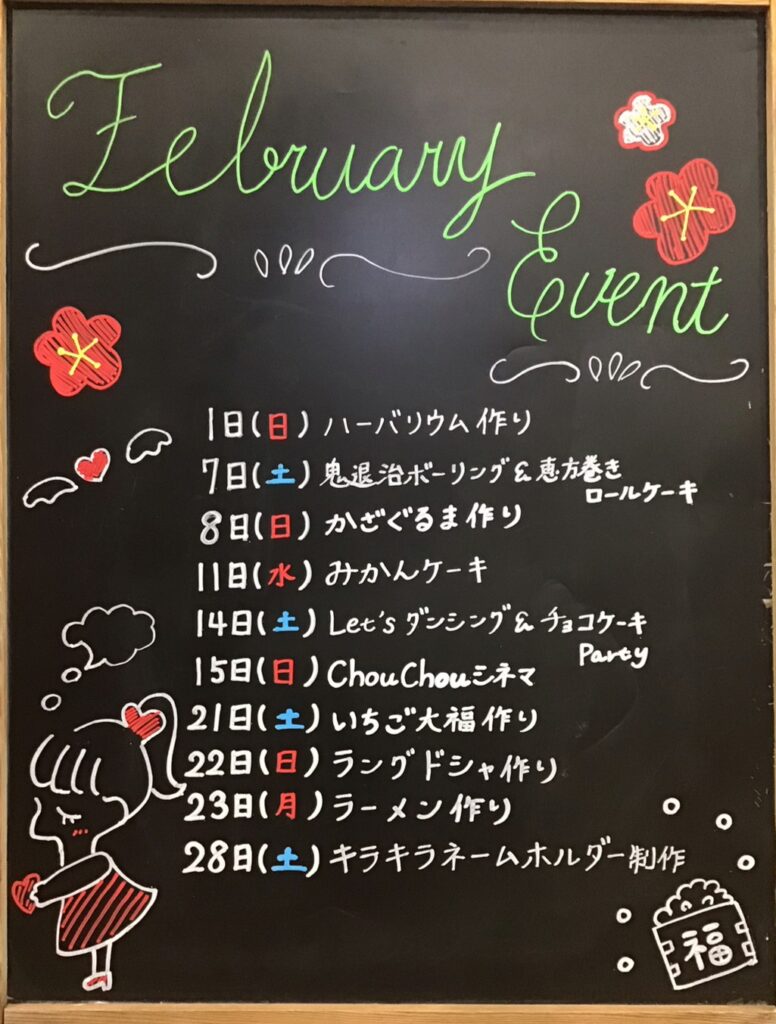 February
Event
1日(日) ハーバリウム作り
7日(土) 鬼退治ボーリング&恵方巻き
ロールケーキ
8日(日) かざぐるま作り
11日(水) みかんケーキ
14日(土) Let's ダンシング&チョコケーキ
Party
15日(日) ChouChouシネマ
21日(土) いちご大福作り
22日(日) ラングドシャ作り
23日(月) ラーメン作り
28日(土) キラキラネームホルダー制作
福